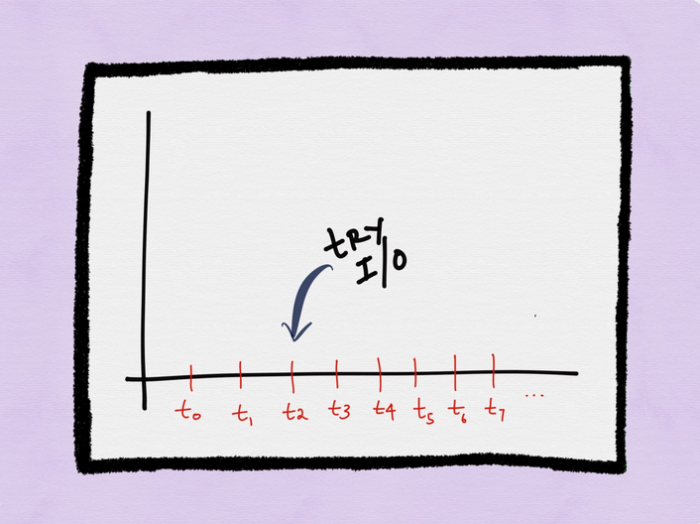 tRY
I/O
t0 t1 t2 t3 t4 t5 t6 t7 ...